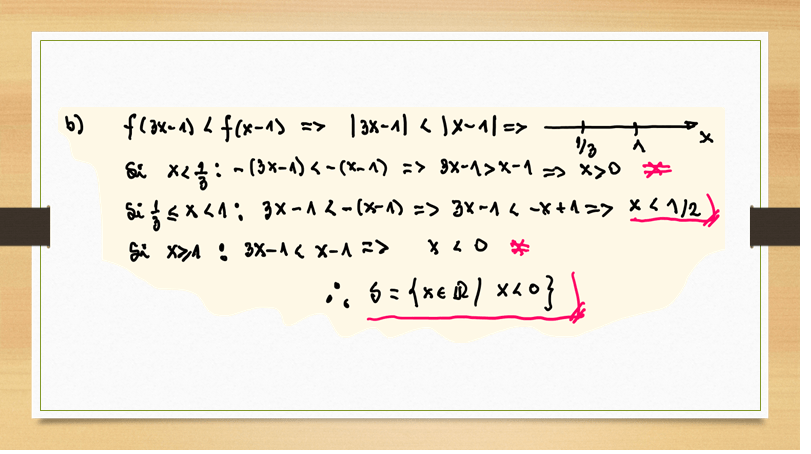 b) f(3x-1) < f(x-1) => |3x-1| < |x-1| =>
1/3 1 x
Si x < 1/3 : -(3x-1) < -(x-1) => 3x-1 > x-1 => x > 0
Si 1/3 ≤ x < 1 : 3x-1 < -(x-1) => 3x-1 < -x+1 => x < 1/2
Si x ≥ 1 : 3x-1 < x-1 => x < 0
∴ S = {x ∈ ℝ / x < 0}